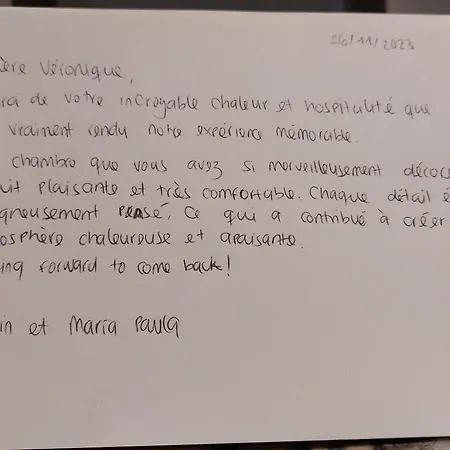 26/11/2023
ère Véronique,
rci de votre incroyable chaleur et hospitalité que
vraiment rendu notre expérience mémorable.
chambre que vous avez si merveilleusement décoré
uit plaisante et très comfortable. Chaque détail é
gneusement pensé, ce qui a contribué à créer
osphère chaleureuse et apaisante.
ing forward to come back!
in et Maria Paula